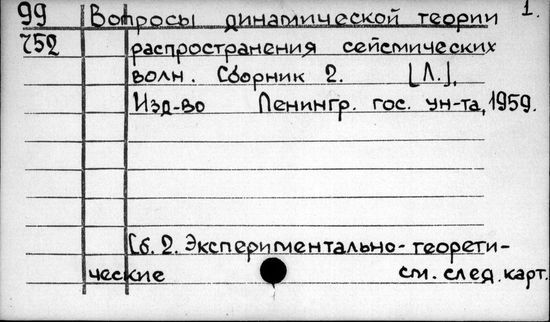 99 Вопросы динамической теории 1.
752 распространения сейсмических
волн. Сборник 2. [Л.],
Изд-во Ленингр. гос. ун-та, 1959.
Сб. 2. Экспериментально-теорети-
ческие см. след. карт.